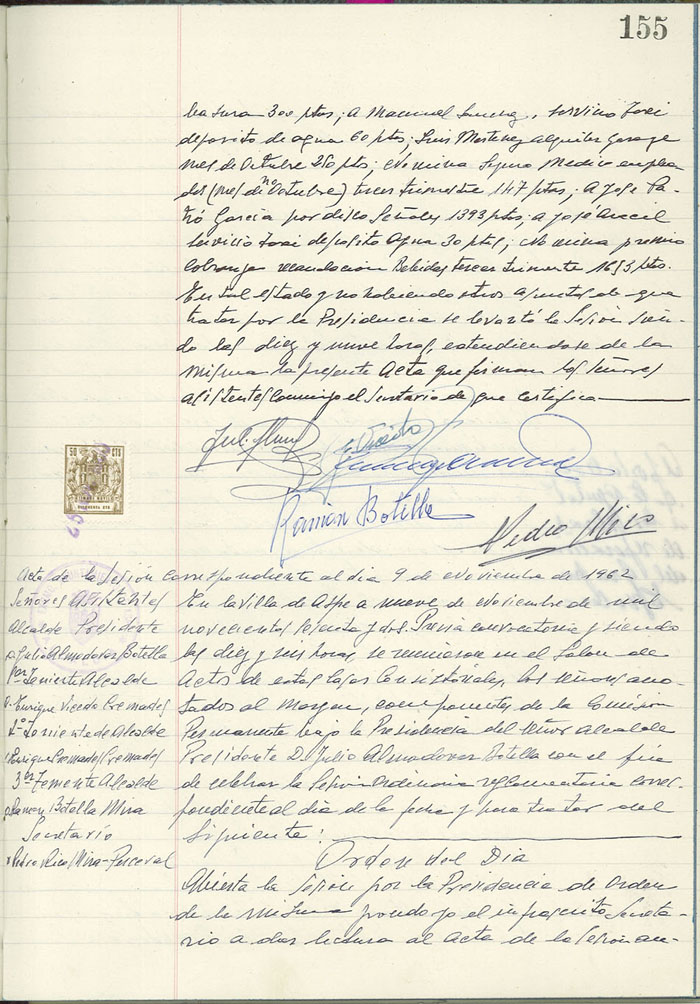 155
basura 300 ptas; a Manuel Sanchez, servicio
deposito de agua 60 ptas; Luis Martinez alquiler garage
mes de Octubre 250 ptas; Nomina Seguro Medico emplea
dos (mes de Octubre) tercer trimestre 147 ptas; A Jose
Garcia por disco Señales 1393 ptas; a José
servicio deposito Agua 30 ptas; Nomina premio
Cobranza recaudacion Bebidas tercer trimestre 1653 ptas.
En tal estado y no habiendo otros asuntos de que
tratar por la Presidencia se levantó la Sesión sien-
do las diez y nueve horas, extendiendose de la
misma la presente Acta que firman los Señores
asistentes conmigo el Secretario de que certifico
50 CTS
E. Vicedo
Ramón Botella
Pedro Rico
Acta de la Sesión correspondiente al dia 9 de Noviembre de 1962
Señores Asistentes
Alcalde Presidente
D. Julio Almodovar Botella
1er Teniente Alcalde
D. Enrique Vicedo Cremades
2º Teniente de Alcalde
D. Enrique Cremades Cremades
3er Teniente Alcalde
D. Ramon Botella Mira
Secretario
D. Pedro Rico Mira-Perceval
En la villa de Aspe a nueve de Noviembre de mil
novecientos sesenta y dos. Previa convocatoria y siendo
las diez y seis horas, se reunieron en el Salon de
Actos de estas Casas Consistoriales, los señores ano-
tados al margen, componentes de la Comisión
Permanente bajo la Presidencia del señor Alcalde
Presidente D. Julio Almodovar Botella con el fin
de celebrar la Sesión Ordinaria reglamentaria corres-
pondiente al dia de la fecha y para tratar del
siguiente:
Orden del Dia
Abierta la Sesión por la Presidencia de Orden
de la misma procedo yo el infrascrito Secreta-
rio a dar lectura al acta de la Sesión an-